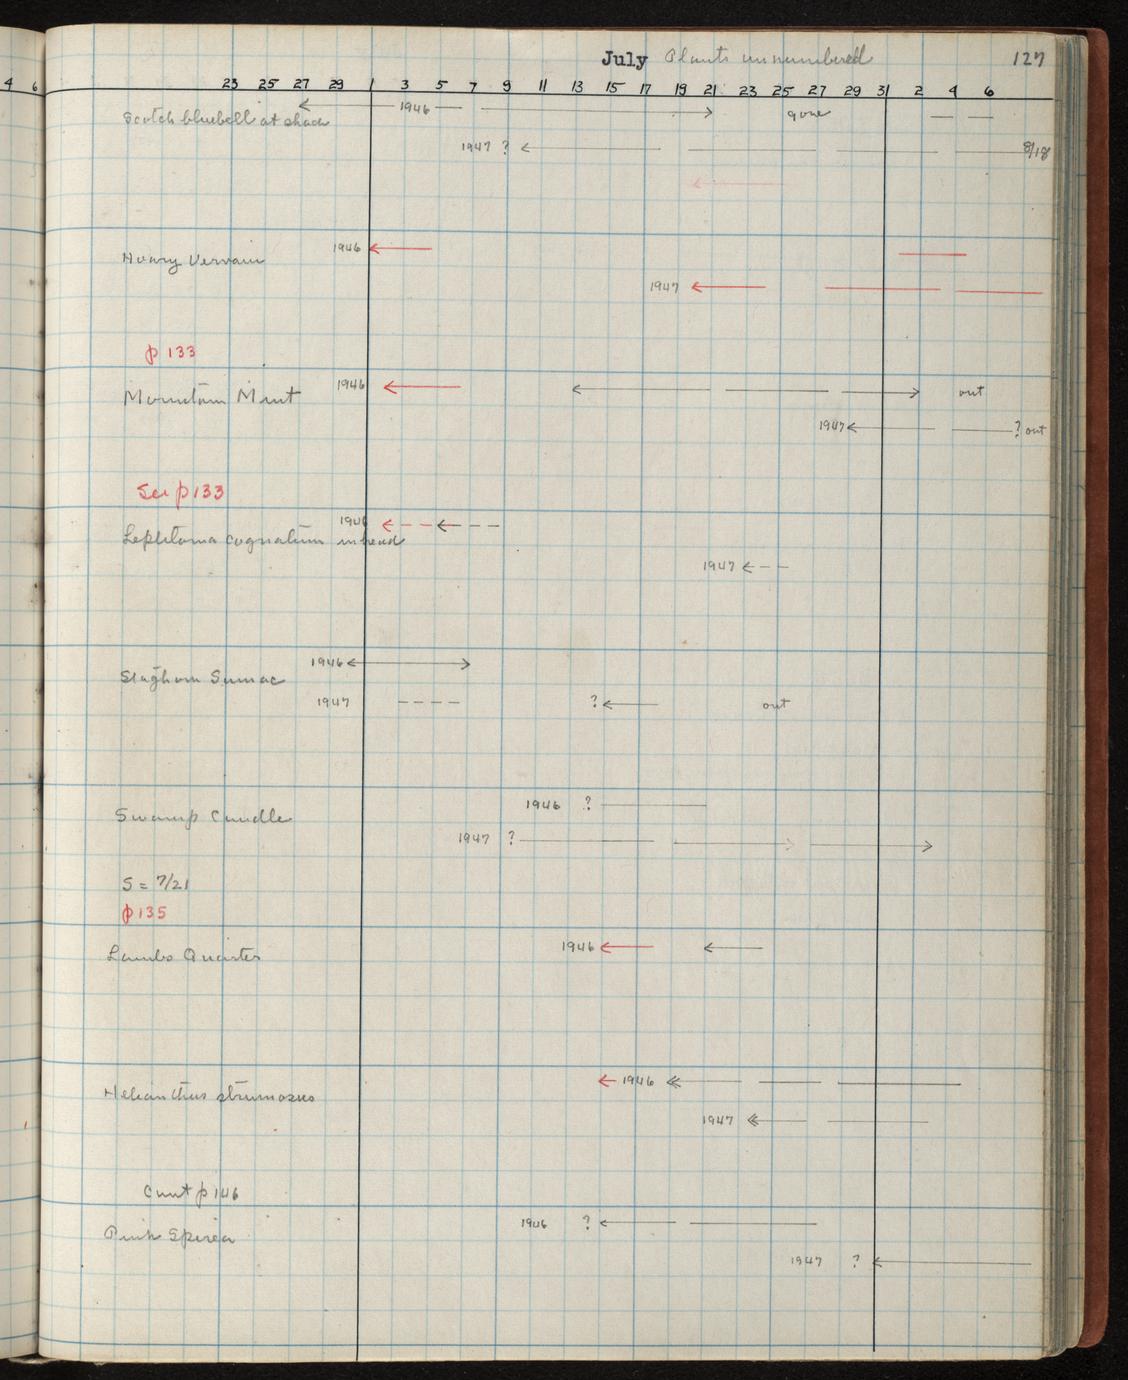 July Plants unnumbered 127
4 6 23 25 27 29 1 3 5 7 9 11 13 15 17 19 21 23 25 27 29 31 2 4 6
Scotch bluebell at shack 1946 gone
1947 ? 8/18
Hoary Vervain 1946
1947
p 133
Mountain Mint 1946 out
1947 ? out
See p 133
1946
cognatum in head
1947
Staghorn Sumac 1946
1947 ? out
Swamp Candle 1946 ?
1947 ?
S = 7/21
p 135
Lambs Quarter 1946
Helianthus strumosus 1946
1947
Cont p 146
Pink Spirea 1946 ?
1947 ?